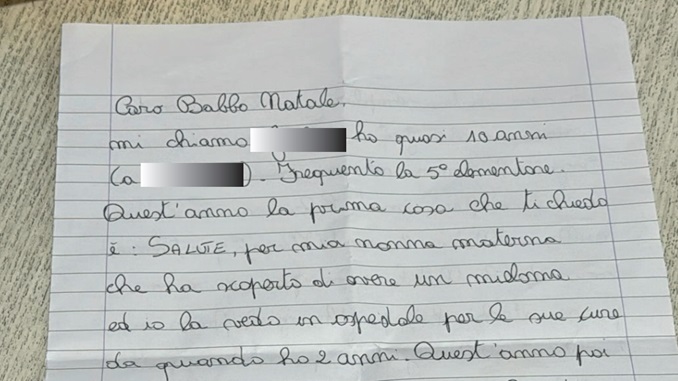 Caro Babbo Natale,
mi chiamo ho quasi 10 anni
(a ). Frequento la 5° elementare.
Quest'anno la prima cosa che ti chiedo
è: SALUTE, per mia nonna materna
che ha scoperto di avere un midoma
ed io la vedo in ospedale per le sue cure
da quando ho 2 anni. Quest'anno poi